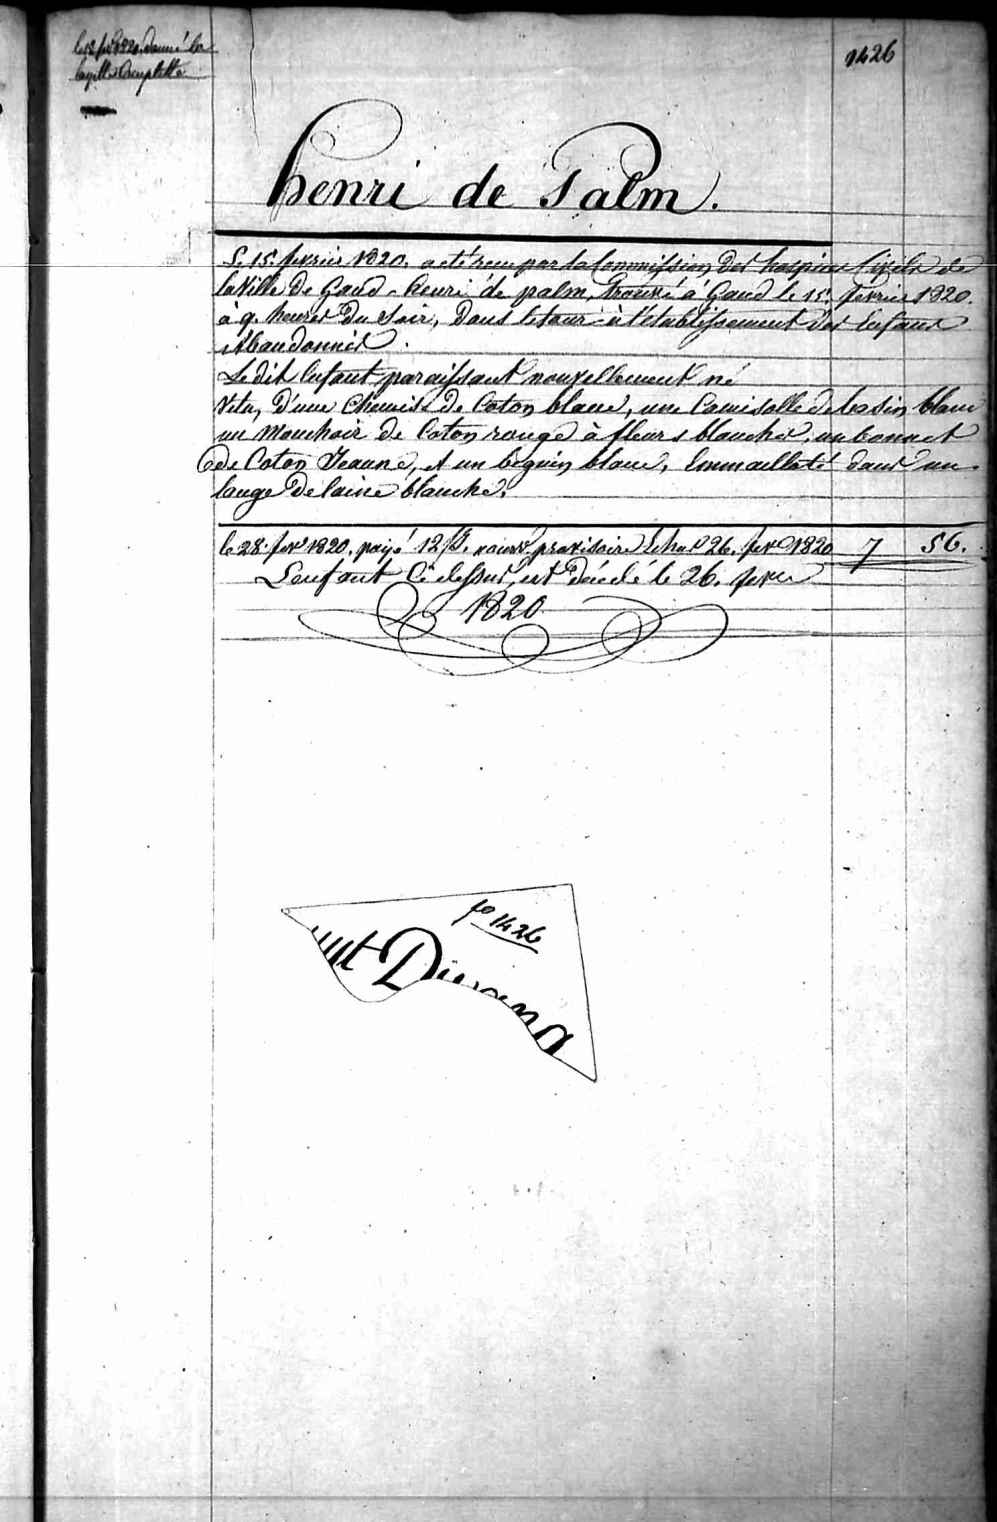 le 12 fevr 1820. donné la
layette complette
1426
henri de Palm.
Le 15. fevrier 1820. a eté recu par la Commission des hospices Civils de
la Ville de Gand - henri de palm, trouvé à Gand le 15. fevrier 1820.
à 9. heures du Soir, dans le tour à l'établissement des Enfans
Abandonnés.
Le dit Enfant paraissant nouvellement né
Vetu, d'une Chemise de Coton blanc, une Camisolle de basin blanc
un Mouchoir de Coton rouge à fleurs blanches, un bonnet
de Coton Jeaune, et un beguin blanc, Emmailloté dans un
lange de laine blanche.
le 28. fevr 1820. payé 12 nourr. provisoire Echu 26. fevr 1820 7 56.
L'enfant Ci dessus, est décédé le 26. fevrier
1820
fo 1426